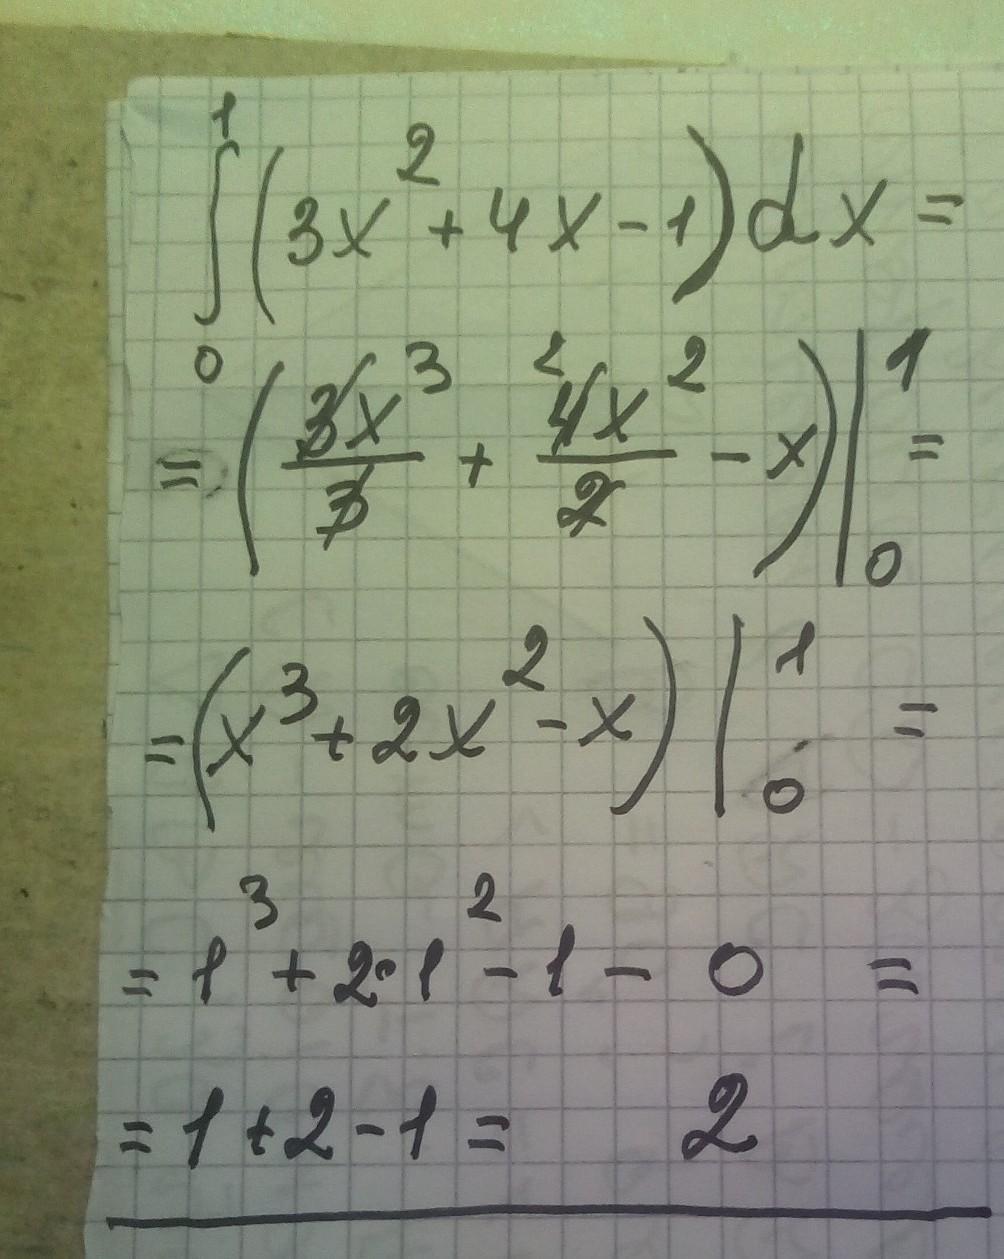 ∫₀¹ (3x² + 4x - 1) dx =
= (3x³/3 + ²4x²/2 - x) |₀¹ =
= (x³ + 2x² - x) |₀¹ =
= 1³ + 2·1² - 1 - 0 =
= 1 + 2 - 1 = 2